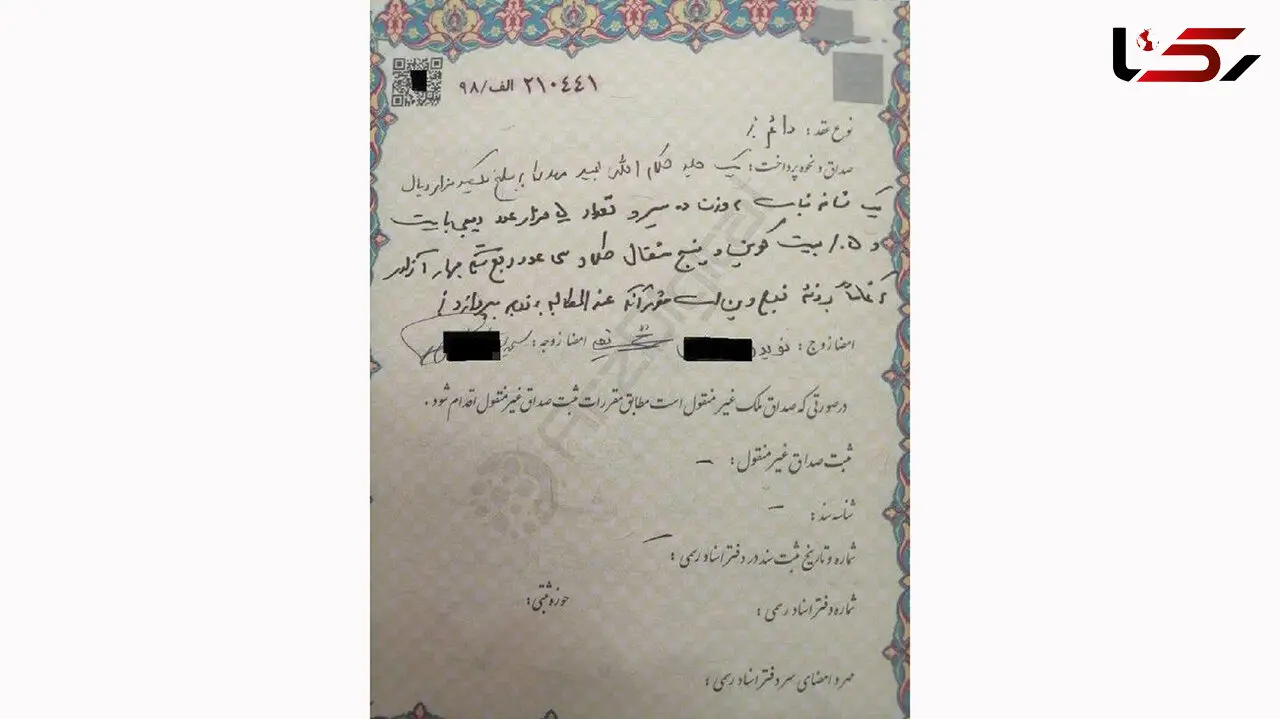 رکنا
۲۱۰۴۴۱ الف/۹۸
نوع عقد: دائم
صداق و نحوه پرداخت: یک جلد کلام الله مجید مهد را به مبلغ یکصد هزار ریال
یک شاخه نبات به وزن ده سیر و تعداد ۵ هزار عدد دیجی بایت
و ۰.۵ بیت کوین و پنج مثقال طلا و سی عدد ربع سکه بهار آزادی
که تماماً بر ذمه زوج دین است عندالمطالبه به زوجه بپردازد
امضا زوج: نوید امضا زوجه:
در صورتی که صداق ملک غیر منقول است مطابق مقررات ثبت صداق غیر منقول اقدام شود.
ثبت صداق غیر منقول: –
شناسه سند: –
شماره و تاریخ ثبت سند در دفتر اسناد رسمی: –
شماره دفتر اسناد رسمی: حوزه ثبتی:
مهر و امضای سر دفتر اسناد رسمی:
ARZDIGITAL